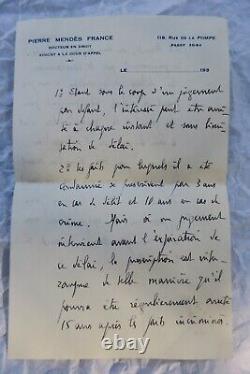 PIERRE MENDÈS FRANCE
DOCTEUR EN DROIT
AVOCAT A LA COUR D'APPEL
118, RUE DE LA POMPE
PASSY
LE 193
1º Étant sous le coup d'un jugement
par défaut, l'intéressé peut être
à chaque instant et sans
de délai.
2º Les faits pour lesquels il a été
condamné se prescrivent par 3 ans
en cas de délit et 10 ans en cas de
crime. Mais si un jugement
intervient avant l'expiration de
ce délai, la prescription est
de telle manière qu'il
pourra être régulièrement arrêté
15 ans après les faits incriminés.